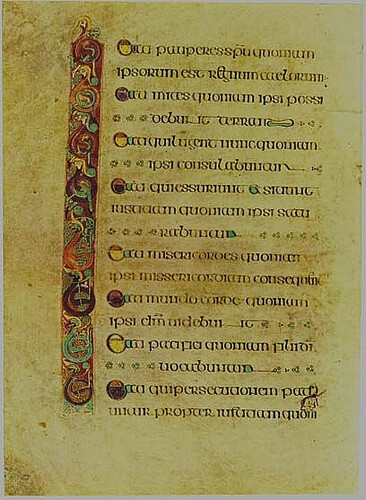 Beati pauperes spū quoniam
ipsorum est regnum caelorum
Beati mites quoniam ipsi possi
debunt terram
Beati qui lugent nunc quoniam
ipsi consulabuntur
Beati qui essuriunt & sitiunt
iustitiam quoniam ipsi satu
rabuntur
Beati misericordes quoniam
ipsi missericordiam consequntur
Beati mundo corde quoniam
ipsi dm̄ videbunt
Beati pacifici quoniam filii di
vocabuntur
Beati qui persecutionem pati
untur propter iustitiam quoni